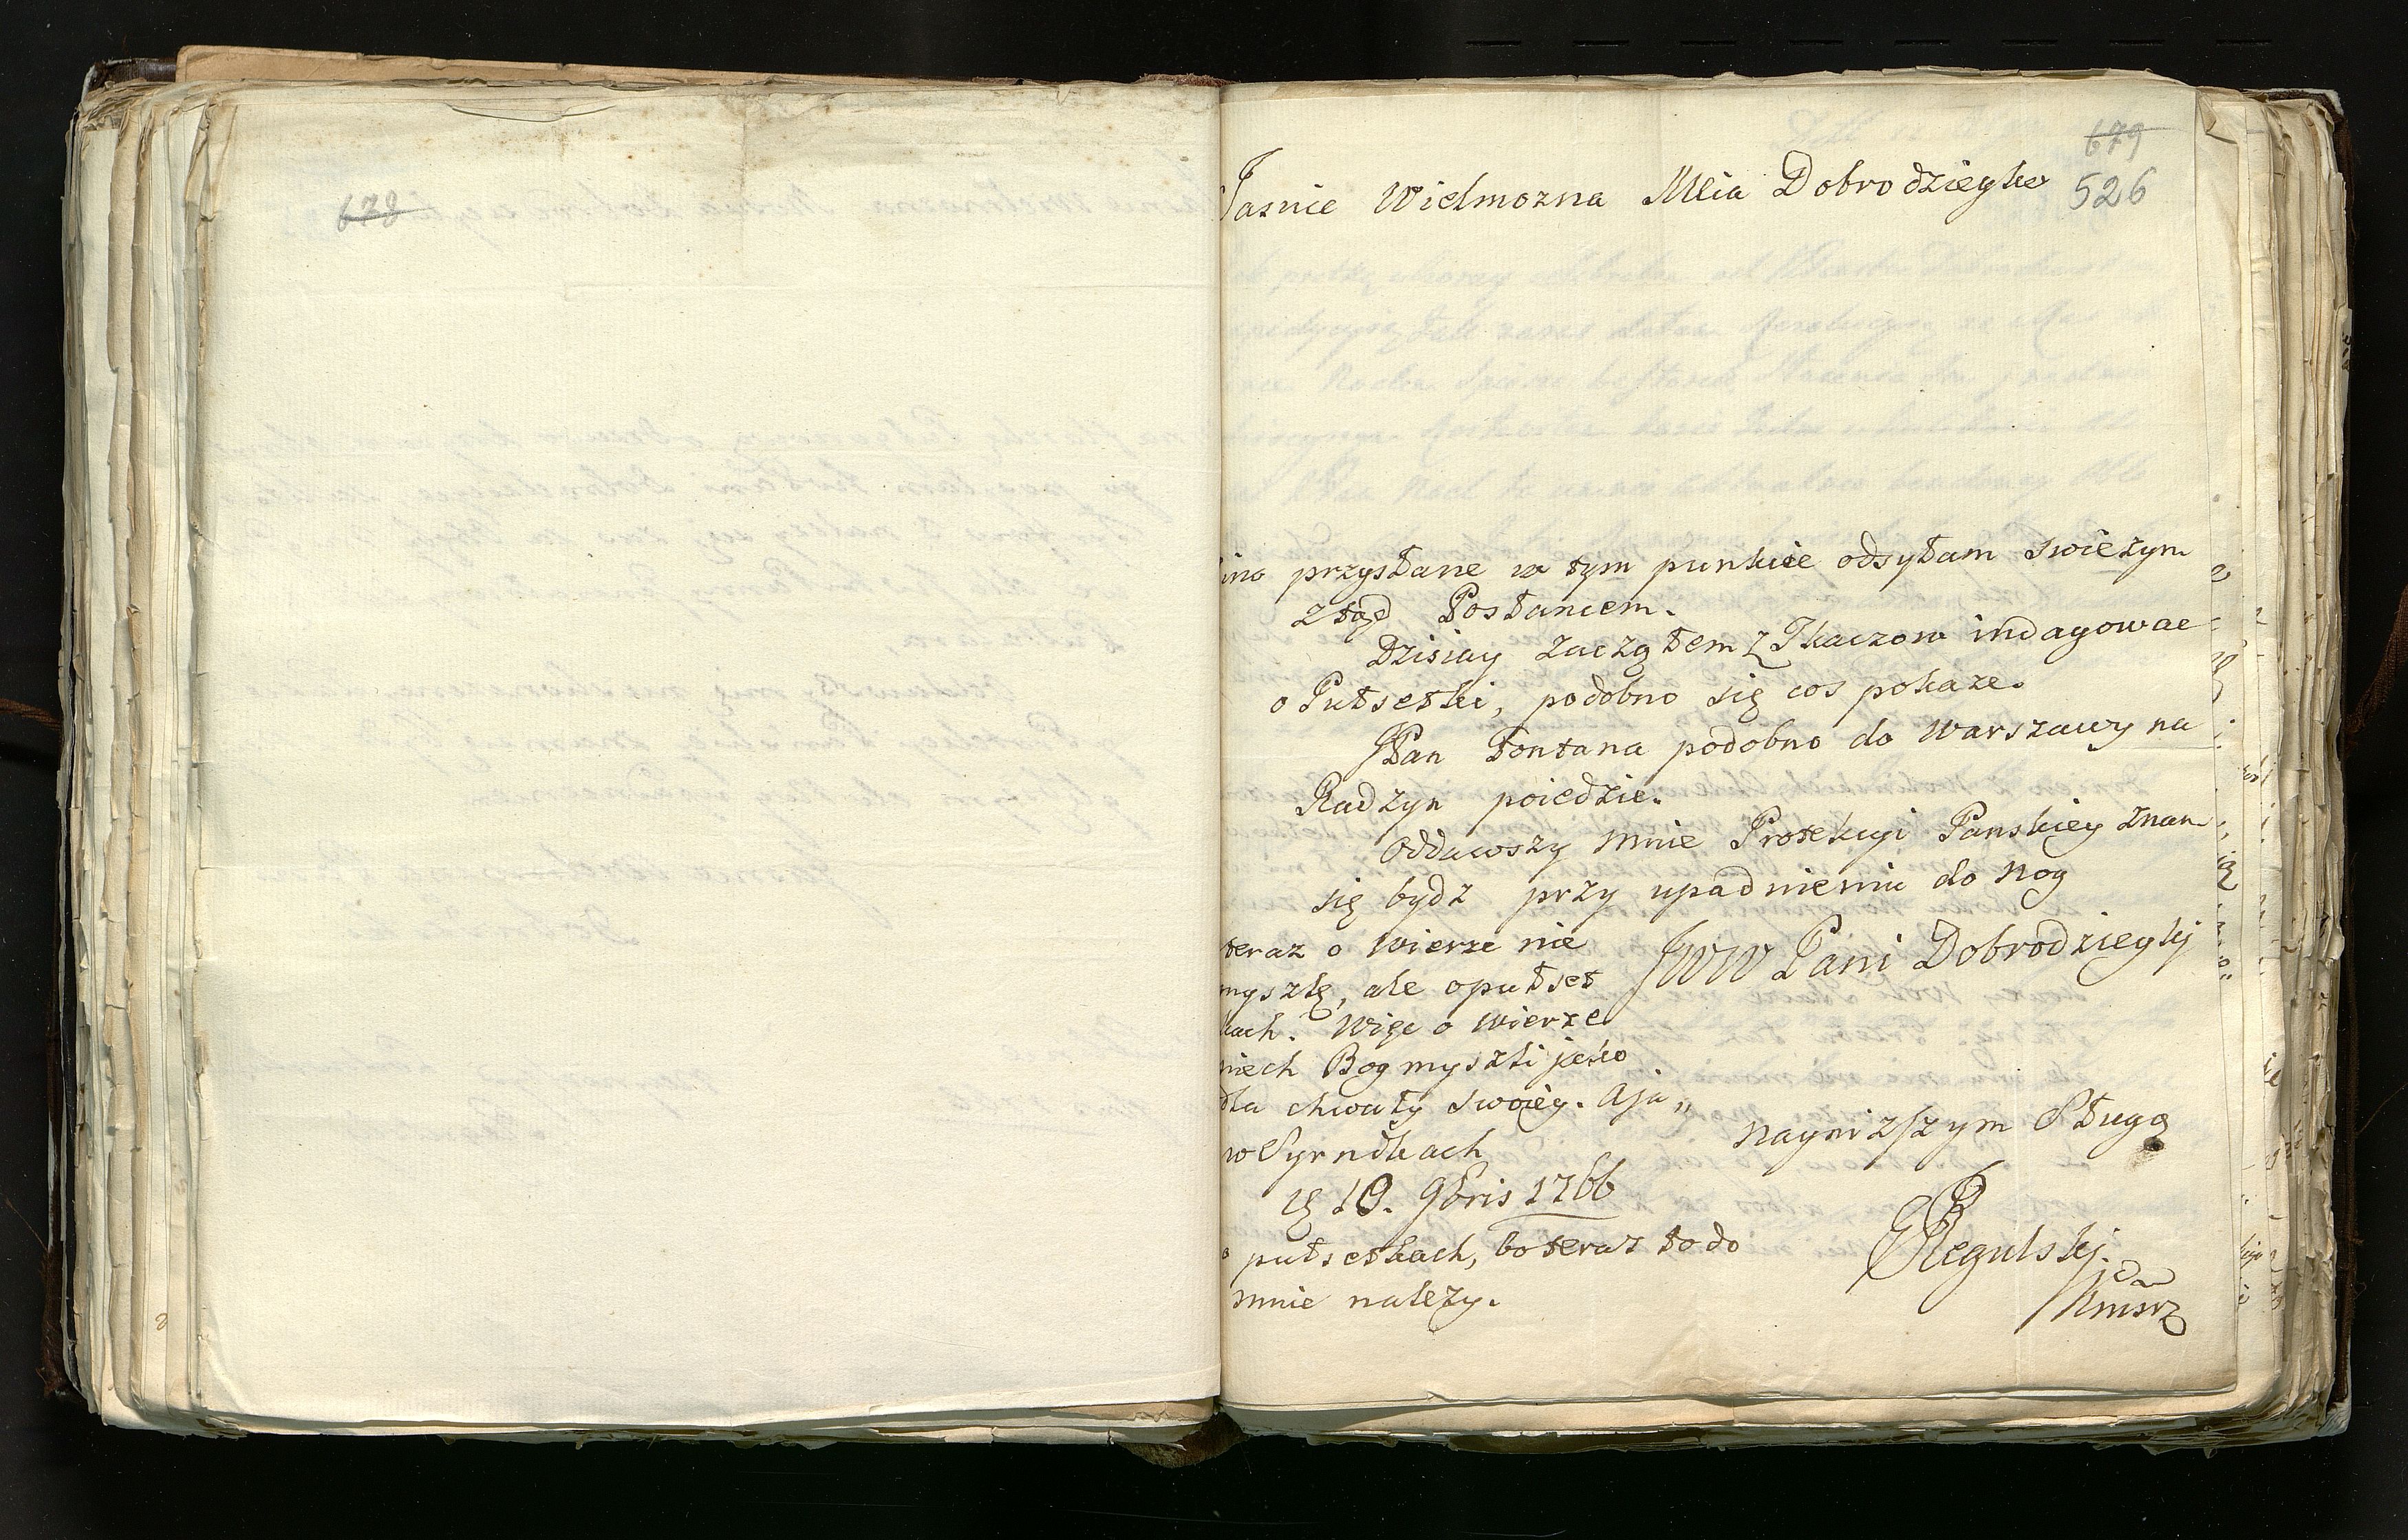 678
679
526
Jasnie Wielmozna Mcia Dobrodzieyko
przysłane w tym punkcie odsyłam swieżym
ztąd Posłancem.
Dzisiay zacząłem z Tkaczow indagowac
o Putsetki, podobno się cos pokaze.
JPan Fontana podobno do Warszawy na
Radzyn poiedzie.
Oddawszy mnie Protekcyi Panskiey znam
się bydz przy upadnieniu do nog
JWW Pani Dobrodzieyki
teraz o wierze nie
myszlę, ale o putset
kach. Więc o wierze
niech Bog myszli jako
dla chwały swoiey. A ja„
w
ą 10. 9bris 1766
o putsetkach, bo teraz to do
mnie należy.
nayniższym Sługą
Regulskj